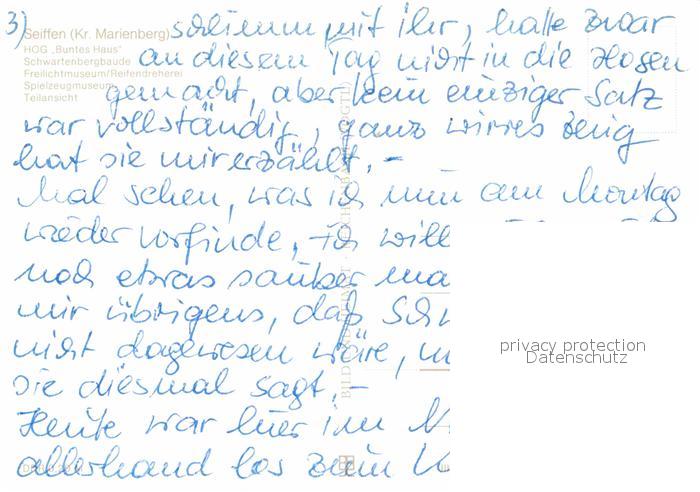 3) schlimm mit ihr, hatte zwar
Seiffen (Kr. Marienberg)
HOG „Buntes Haus"
Schwartenbergbaude
Freilichtmuseum/Reifendreherei
Spielzeugmuseum
Teilansicht
an diesem Tag nicht in die Hosen
gemacht, aber kein einziger Satz
war vollständig, ganz wirres Zeug
hat sie mir erzählt. –
Mal sehen, was ich nun am Montag
wieder vorfinde, ich will
noch etwas sauber ma
mir übrigens, daß Sch
nicht dagewesen wäre,
sie diesmal sagt. –
Heute war hier im
allerhand los zum
privacy protection
Datenschutz